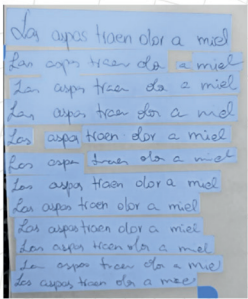 Las aspas traen olor a miel
Las aspas traen olor a miel
Las aspas traen olor a miel
Las aspas traen olor a miel
Las aspas traen olor a miel
Las aspas traen olor a miel
Las aspas traen olor a miel
Las aspas traen olor a miel
Las aspas traen olor a miel
Las aspas traen olor a miel
Las aspas traen olor a miel
Las aspas traen olor a miel